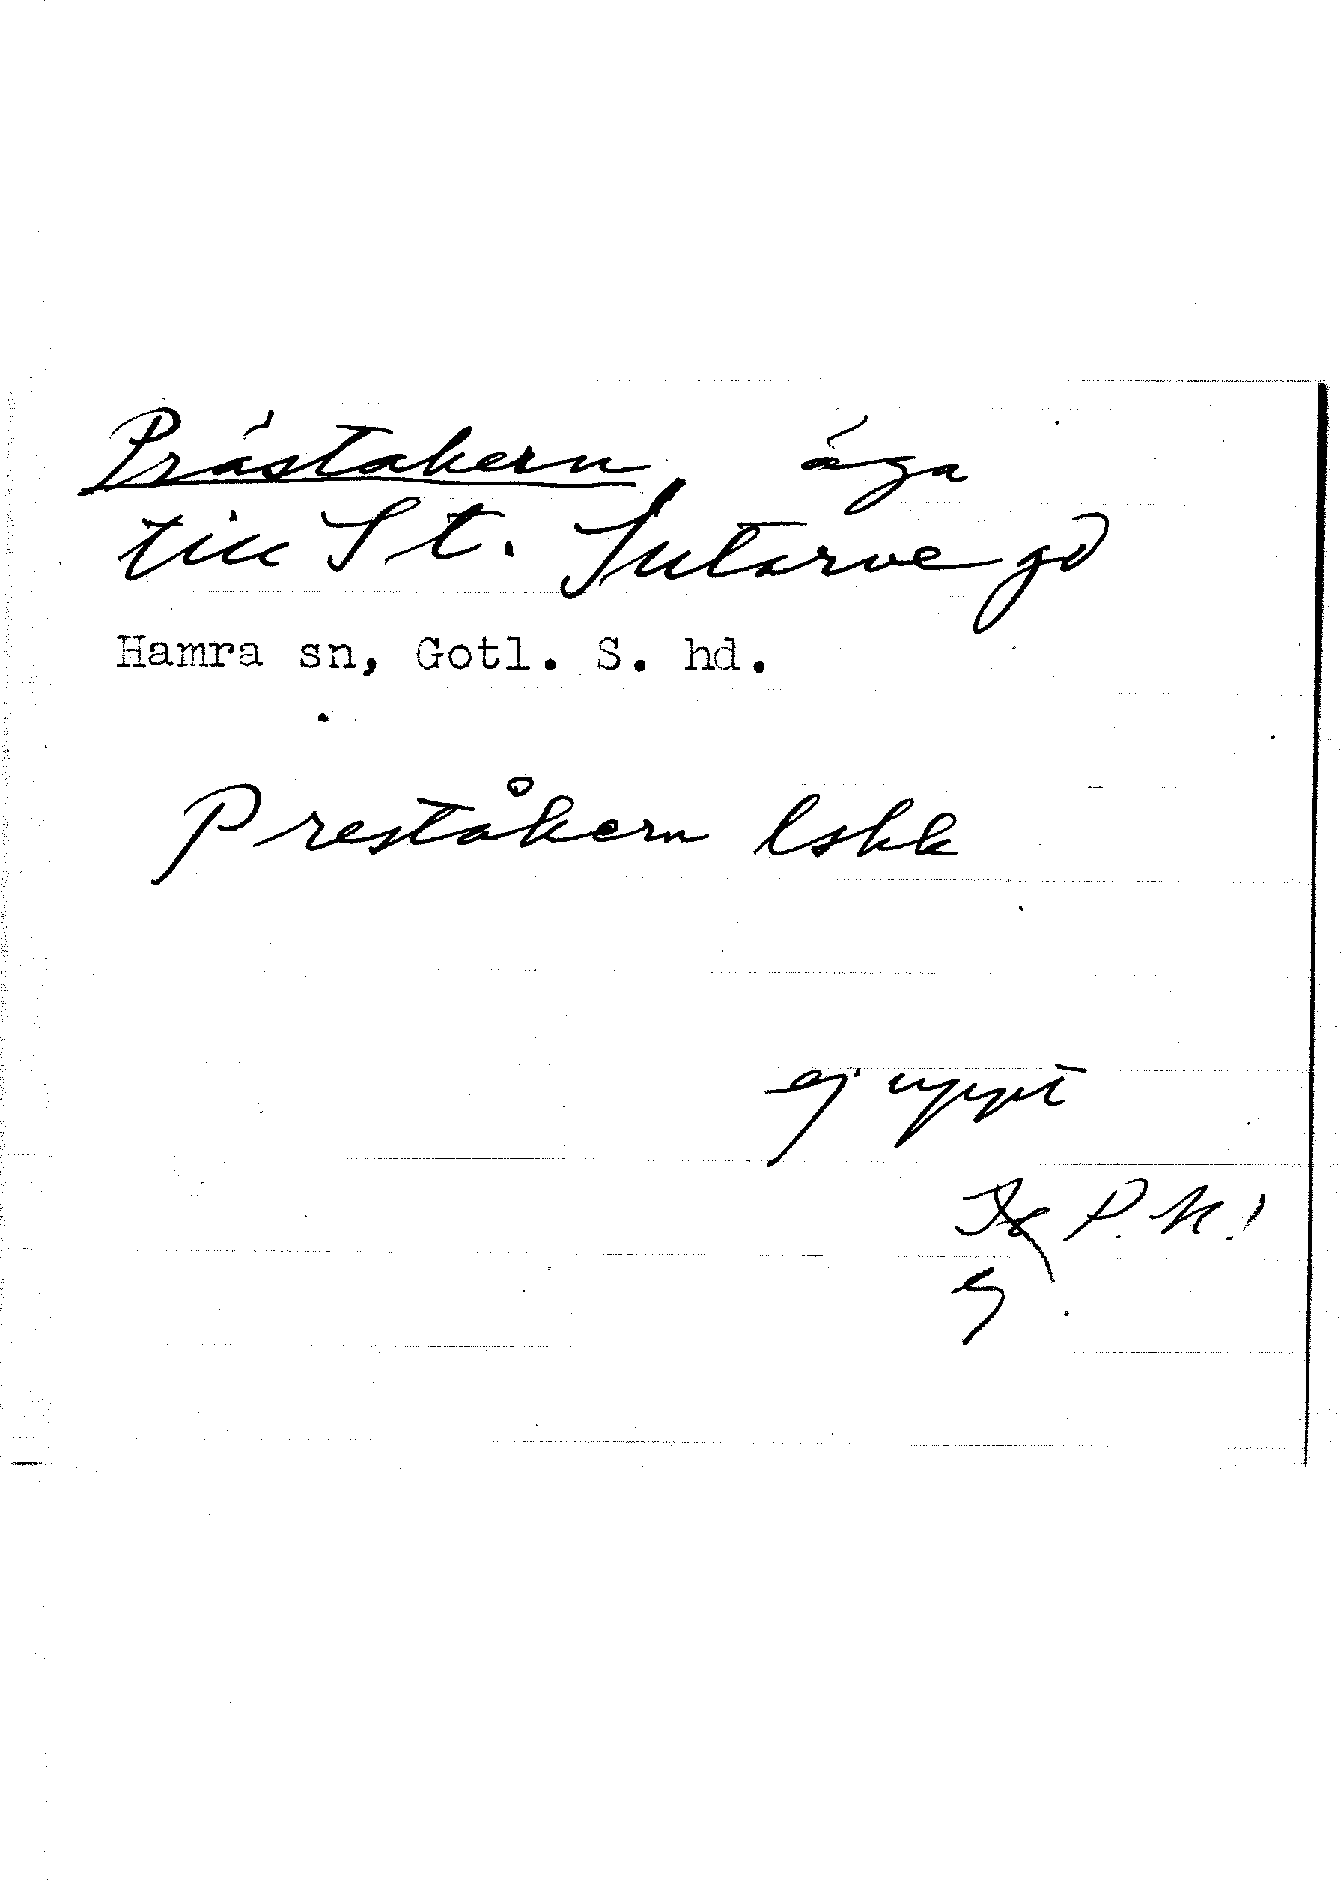 Prästakern äga
till St. Sutarve gd
Hamra sn, Gotl. S. hd.
Preståkern lskk
ej uppt
P. N.!